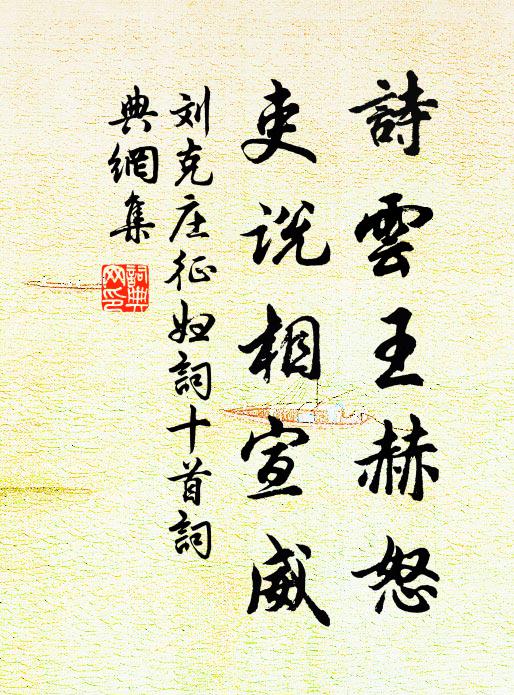 詩雲王赫怒
吏说相宣威
刘克庄征妇詞十首詞
典網集
詞典
网印